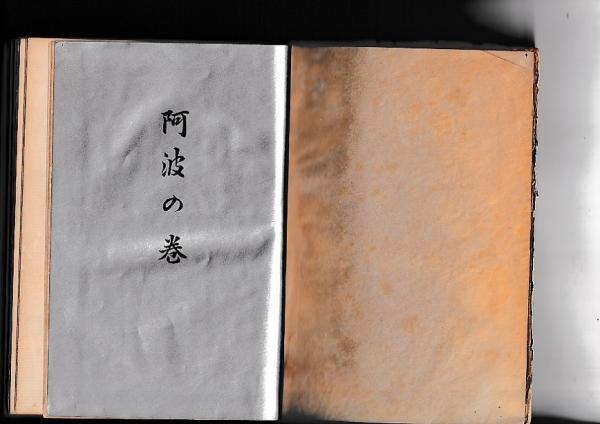 阿波の巻